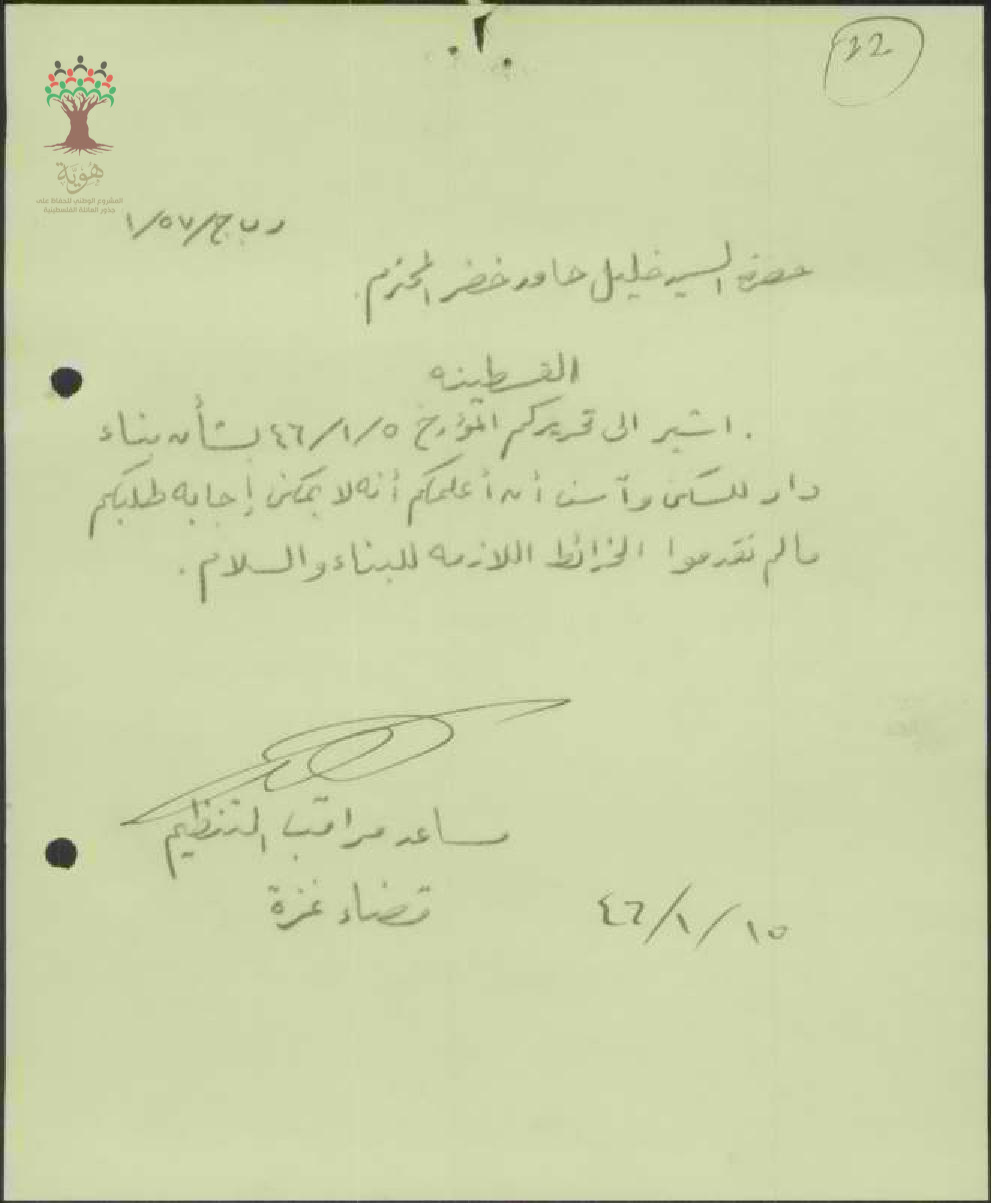 22
هوية
المشروع الوطني للحفاظ على
جذور العائلة الفلسطينية
١/٥٧/
حضرة السيد خليل حامد خضر المحترم.
القسطينه
. اشير الى تحريركم المؤرخ ٤٦/١/٥ بشأن بناء
دار للسكن وآسف أن أعلمكم أنه لا يمكن إجابه طلبكم
مالم تقدموا الخرائط اللازمه للبناء والسلام .
مساعد مراقب التنظيم
قضاء غزة
٤٦/١/١٥